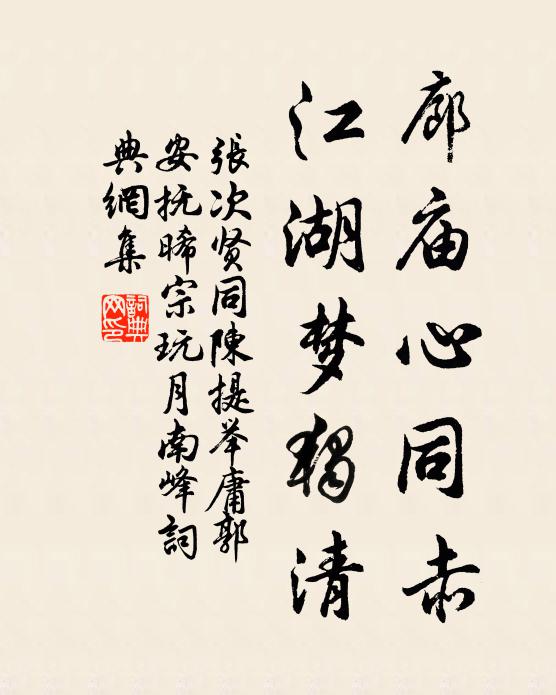 廊庙心同赤
江湖梦独清
張次贤同陳提举庸郭
安抚晞宗玩月南峰詞
典網集
詞典网印